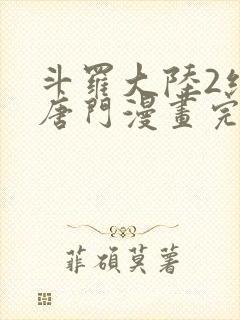 斗羅大陸2
唐門漫畫完
菲碩莫著